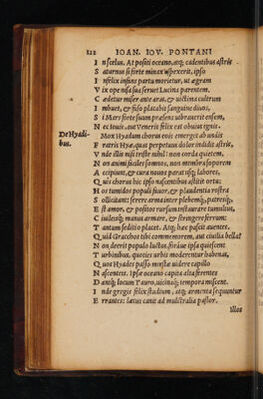 112 IOAN. IOV. PONTANI
I n scelus. At positi oceano, atq; cadentibus astris
S aturnus si forte minax aspexerit, ipso
I nfelix infans partu morietur, ut ægram
V ix ope nisa sua seruet Lucina parentem.
C ædetur miser ante aras, & uictima cultrum
I mbuet, & fuso placabit sanguine diuos,
S i Mars forte suum præsens uibrauerit ensem,
N ec iouis, aut Veneris felix est obuius ignis.
De Hyadi-
bus.
Mox Hyadum chorus ouis emergit ab undis
F ratris Hyæ, quas perpetuus dolor indidit astris,
V nde illis nisi triste nihil: non corda quietem,
N on animi faciles somnos, non membra soporem
A ccipiunt, & cura nouos parat usq; labores,
Q uis chorus hic ipsis nascentibus astitit ortu:
H os tumidos populi fauor, & plaudentia rostra
S ollicitant: seruere arma inter plebemq;, patresq;,
E st amor, & positos rursum instaurare tumultus,
C iuilesq; manus armare, & stringere ferrum:
T antum seditio placet. Atq; hæc pascit auentes.
Q uid Gracchos tibi commemorem, aut ciuilia bella?
N on deerit populo luctus, siue ipsa quiescent
T urbinibus, quoties urbis moderentur habenas,
Q uos Hyades passo mæstæ uidere capillo
N ascenteis. Ipsæ oceano capita alta ferentes
D antq; locum Tauro, uicinaq; tempora miscent.
I nde gregis felix studium, atq; armenta sequuntur
E rrantes: lætus canit ad mulctralia pastor.
Illos